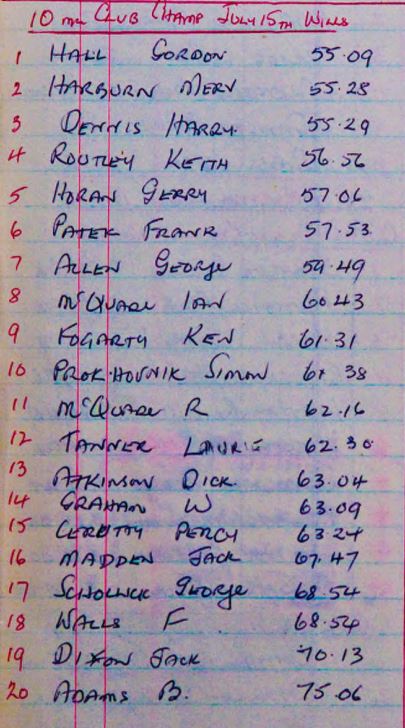 10 mile CLUB CHAMP JULY 15TH WILLS
1 HALL GORDON 55.09
2 HARBURN MERV 55.28
3 DENNIS HARRY. 55.29
4 ROUTLEY KEITH 56.56
5 HORAN GERRY 57.06
6 PATEK FRANK 57.53
7 ALLEN GEORGE 59.49
8 McQUADE IAN 60.43
9 FOGARTY KEN 61.31
10 PROK.HOVNIK SIMON 61 38
11 McQUADE R 62.16
12 TANNER LAURIE 62.30
13 ATKINSON DICK. 63.04
14 GRAHAM W 63.09
15 CERUTTY PERCY 63.24
16 MADDEN JACK 67.47
17 GEORGE 68.54
18 WALLS F 68.54
19 DIXON JACK 70.13
20 ADAMS B. 75.06